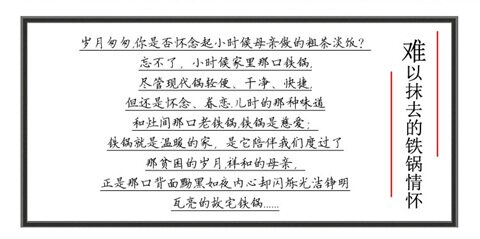 岁月匆匆,你是否怀念起小时候母亲做的粗茶淡饭?
忘不了,小时候家里那口铁锅,
尽管现代锅轻便、干净、快捷,
但还是怀念、眷恋,儿时的那种味道
和灶间那口老铁锅,铁锅是慈爱;
铁锅就是温暖的家,是它陪伴我们度过了
那贫困的岁月,祥和的母亲,
正是那口背面黝黑如夜内心却闪烁光洁铮明
瓦亮的故宅铁锅......
难以抹去的铁锅情怀